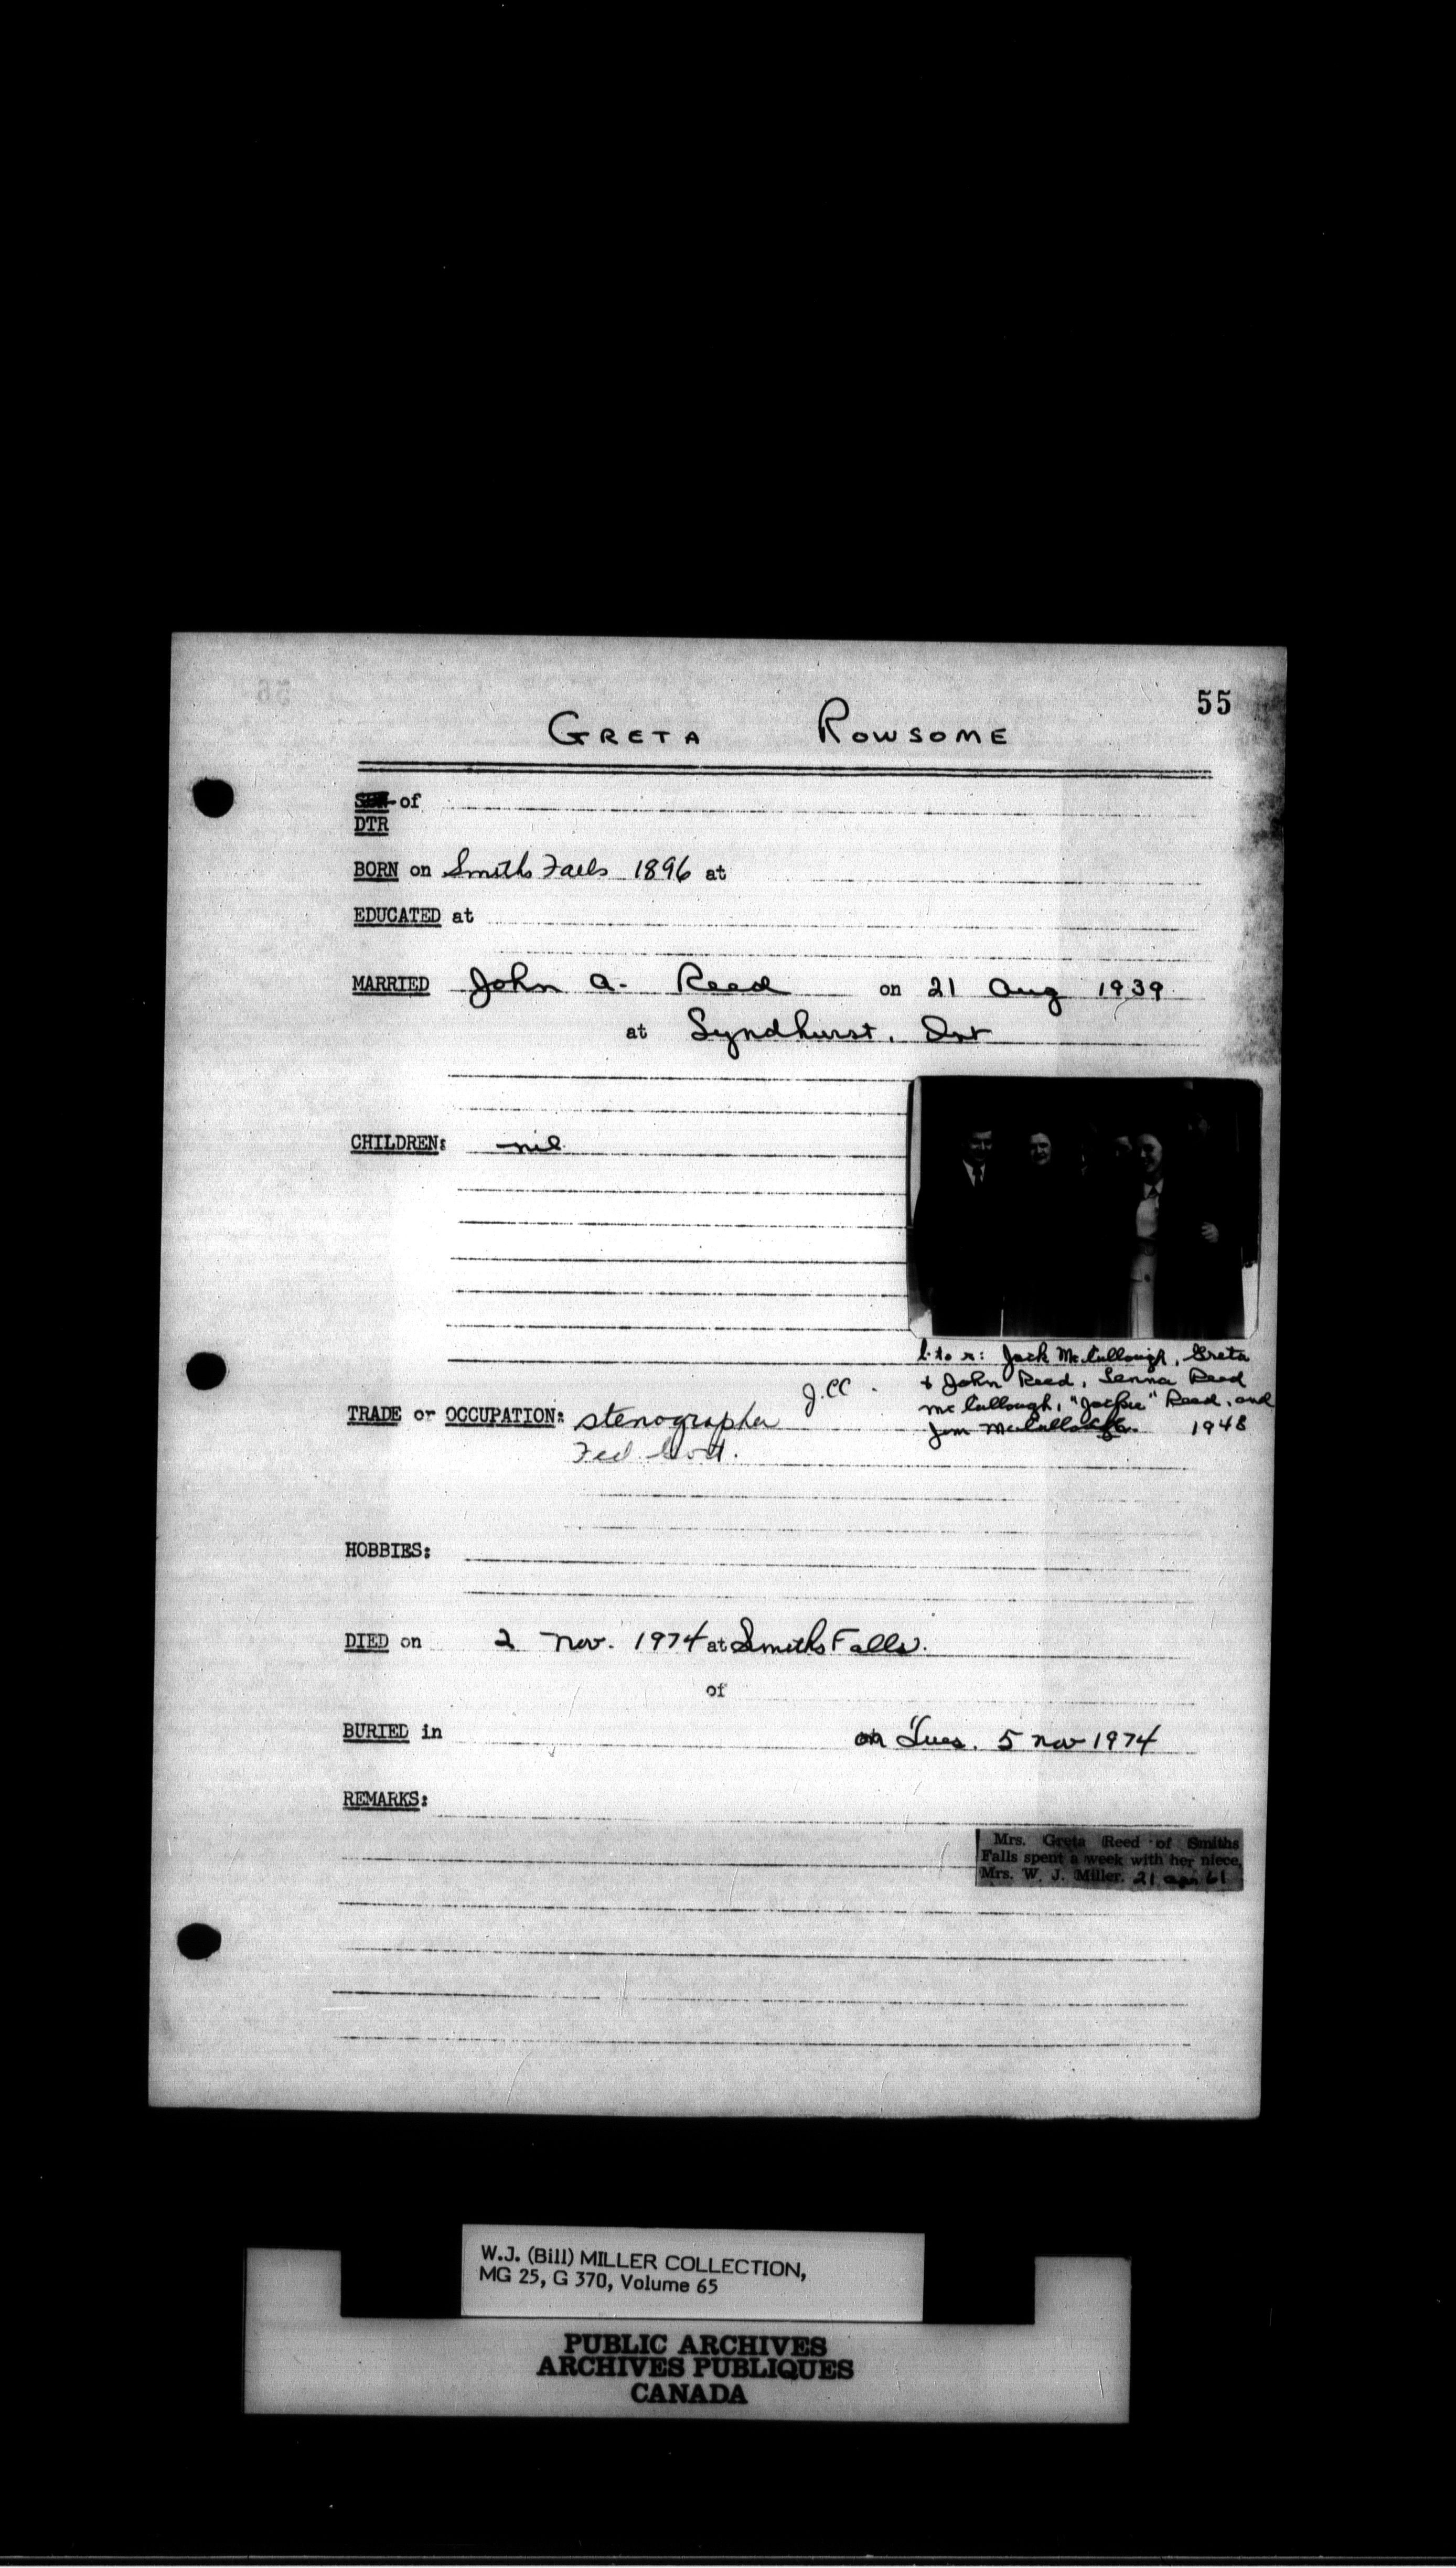 55
GRETA ROWSOME
SON of
DTR
BORN on Smiths Falls 1896 at
EDUCATED at
MARRIED John A. Reed on 21 Aug 1939
at Lyndhurst, Ont
CHILDREN: nil
l. to r: Jack McCullough, Greta
+ John Reed, Lenna Reed
McCullough, "Jackie" Reed, and
Jim McCullough. 1948
TRADE or OCCUPATION: stenographer
Fed. Govt.
HOBBIES:
DIED on 2 Nov. 1974 at Smiths Falls.
of
BURIED in on Tues. 5 Nov 1974
REMARKS:
Mrs. Greta Reed of Smiths
Falls spent a week with her niece,
Mrs. W. J. Miller. 21 Apr 61
W.J. (Bill) MILLER COLLECTION,
MG 25, G 370, Volume 65
PUBLIC ARCHIVES
ARCHIVES PUBLIQUES
CANADA